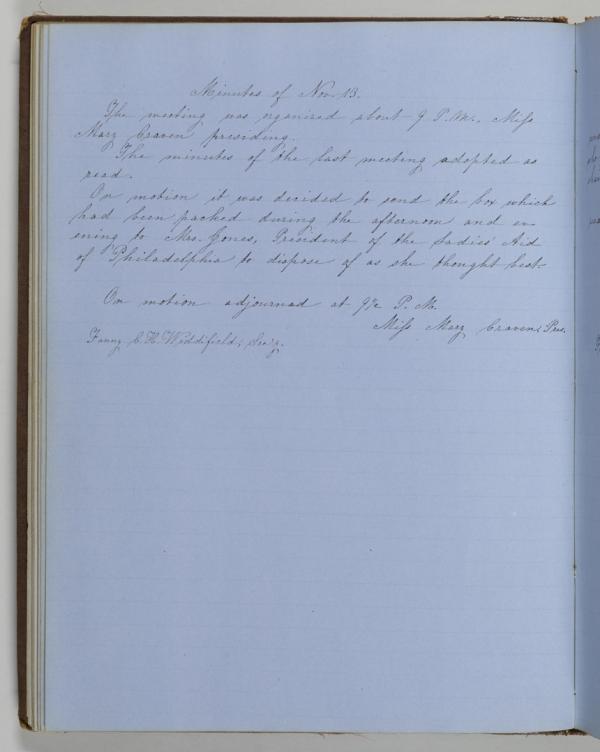 Minutes of Nov. 13.
The meeting was organized about 9 P.M., Miss
Mary Craven presiding.
The minutes of the last meeting adopted as
read.
On motion it was decided to send the box which
had been packed during the afternoon and ev-
ening to Mrs. Jones, President of the Ladies' Aid
of Philadelphia to dispose of as she thought best.
On motion adjourned at 9½ P. M.
Miss Mary Craven, Pres.
Fanny C. H. Waddifield, Sec'y.